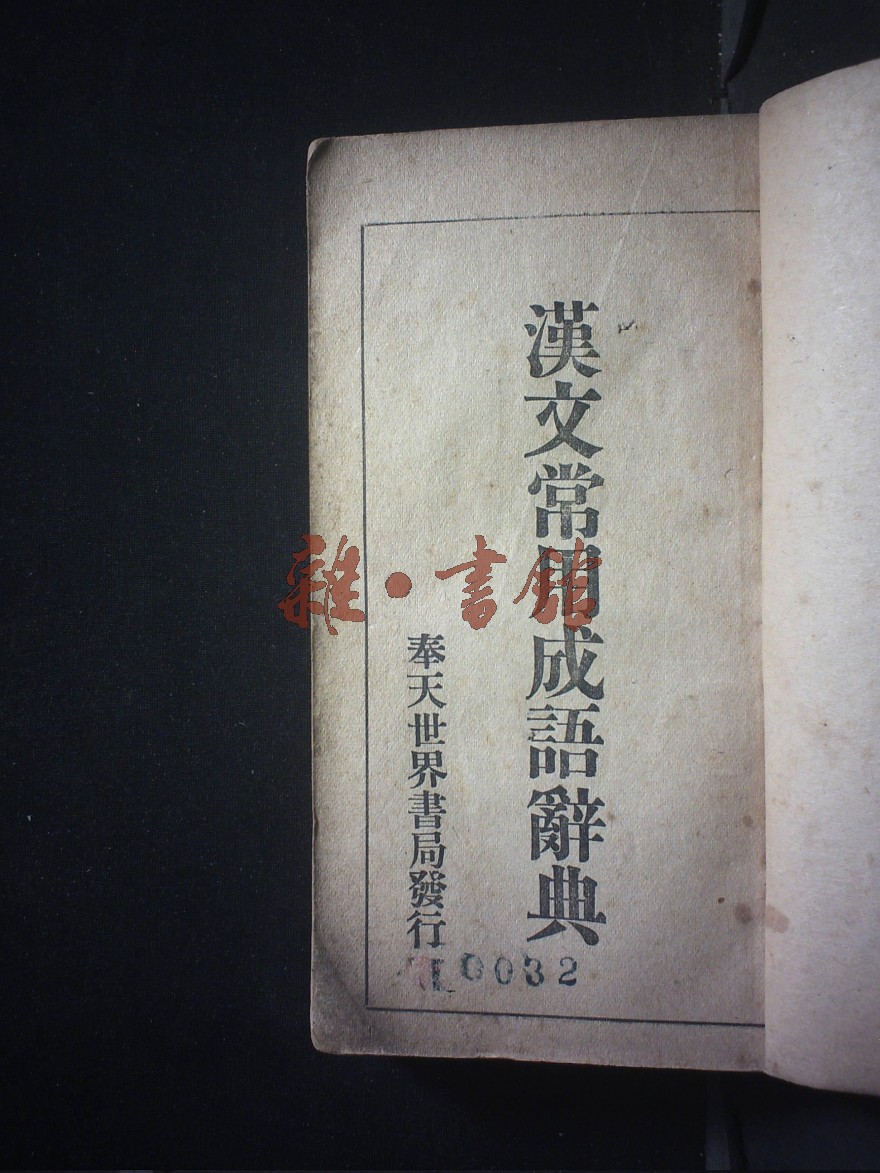 漢文常用成語辭典
奉天世界書局發行
雜·書館
0032